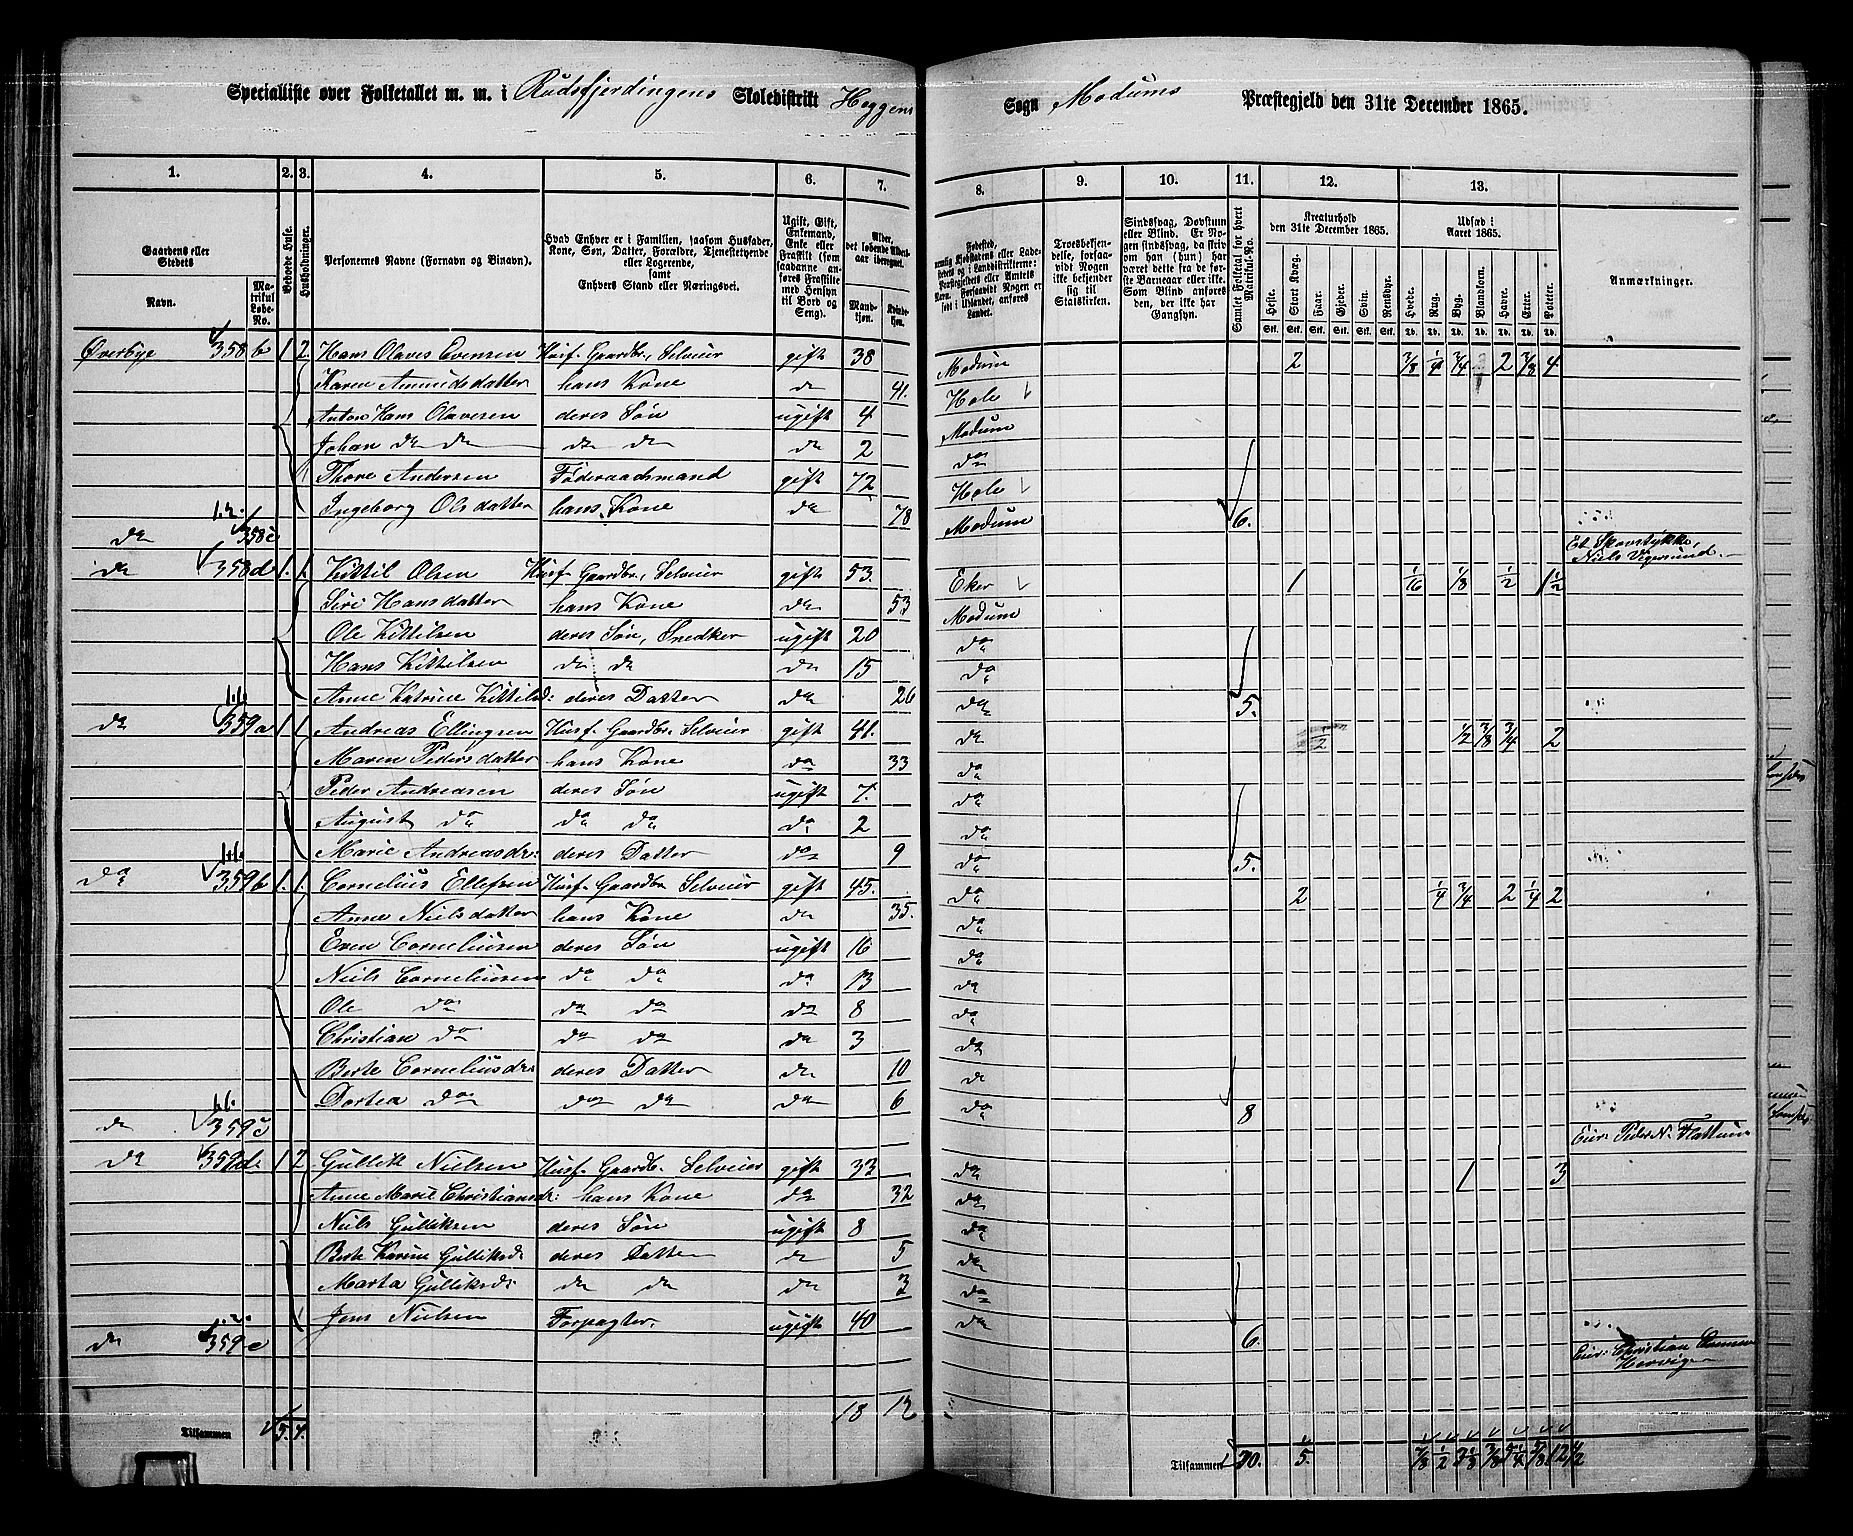 Specialliste over Folketallet m. m. i Rudsfjerdingens Skoledistrikt Heggens Sogn Modums Præstegjeld den 31te December 1865.
1. 2. 3. 4. 5. 6. 7. 8. 9. 10. 11. 12. 13.
Gaardens eller Stedets
Navn. Matrikul Løbe-No.
Beboede Huse.
Husholdninger.
Personernes Navne (Fornavn og Binavn).
Hvad Enhver er i Familien, saasom Husfader, Kone, Søn, Datter, Forældre, Tjenestetyende eller Logerende, samt Enhvers Stand eller Næringsvei.
Ugift, Gift, Enkemand, Enke eller Fraskilt (som saadanne anføres Fraskilte med Hensyn til Bord og Seng).
Alder, det løbende Alders-aar iberegnet.
Mandkjøn. Kvindekjøn.
Troesbekjendelse, forsaavidt Nogen ikke bekjender sig til Statskirken.
Sindssvag, Døvstum eller Blind. Er Nogen sindssvag, da skrives om han (hun) har været dette fra de første Barneaar eller ikke. Som Blind anføres den, der ikke har Gangsyn.
Samlet Folketal for hvert Matrikul-No.
Kreaturhold den 31te December 1865.
Heste. Stort Kvæg. Faar. Gjeder. Svin. Rensdyr.
Udsæd i Aaret 1865.
Hvede. Rug. Byg. Blandkorn. Havre. Erter. Poteter.
Anmærkninger.
Øverbye 358 b 1 2 Hans Olaves Evensen Husf. Gaardbr. Selveier gift 38 Modum 2 3/8 1/4 3/4 2 3/8 4
Karen Amundsdatter hans Kone do 41. Hole
Anton Hans Olavesen deres Søn ugift 4 Modum
Johan do do do do do 2 do
Thore Andersen Føderaadsmand gift 72 Hole
Ingeborg Olsdatter hans Kone do 78 Modum 6.
do 358 c Et Skovstykke, Niels Vigersund.
do 358 d 1. 1. Kittil Olsen Husf Gaardbr. Selveier gift 53. Eker 1 1/16 1/8 1/2 1 1/2
Siri Hansdatter hans Kone do 53 Modum
Ole Kittilsen deres Søn, Snedker ugift 20 do
Hans Kittilsen do do do 15 do
Anne Katrine Kittilsd: deres Datter do 26 do 5.
do 359 a 1 1 Andreas Ellingsen Husf. Gaardbr. Selveier gift 41. do 2 1/2 3/8 3/4 2
Maren Pedersdatter hans Kone do 33 do
Peder Andreasen deres Søn ugift 7. do
August do do do do 2 do
Marie Andreasdr: deres Datter do 9 do 5.
do 359 b 1. 1. Cornelius Ellefsen Husf. Gaardbr. Selveier gift 45. do 2 1/4 3/4 2 1/4 2
Anne Nielsdatter hans Kone do 35. do
Even Corneliusen deres Søn ugift 16 do
Niels Corneliusen do do do 13 do
Ole do do do do 8 do
Christian do do do do 3 do
Berte Corneliusdr: deres Datter do 10 do
Dortea do do do do 6 do 8
do 359 c Eier: Peder N. Flattum
do 359 d. 1 2 Gullik Nielsen Husf. Gaardbr. Selveier gift 33 do 1 3
Anne Marie Christiansd: hans Kone do 32 do
Niels Gulliksen deres Søn ugift 8 do
Berte Karine Gulliksd. deres Datter do 5 do
Marta Gulliksd: do do do 3 do
Jens Nielsen Forpagter. ugift 40 do 6.
do 359 e Eier: Christian
18 12
Tilsammen 5. 7.
Tilsammen 30. 5.